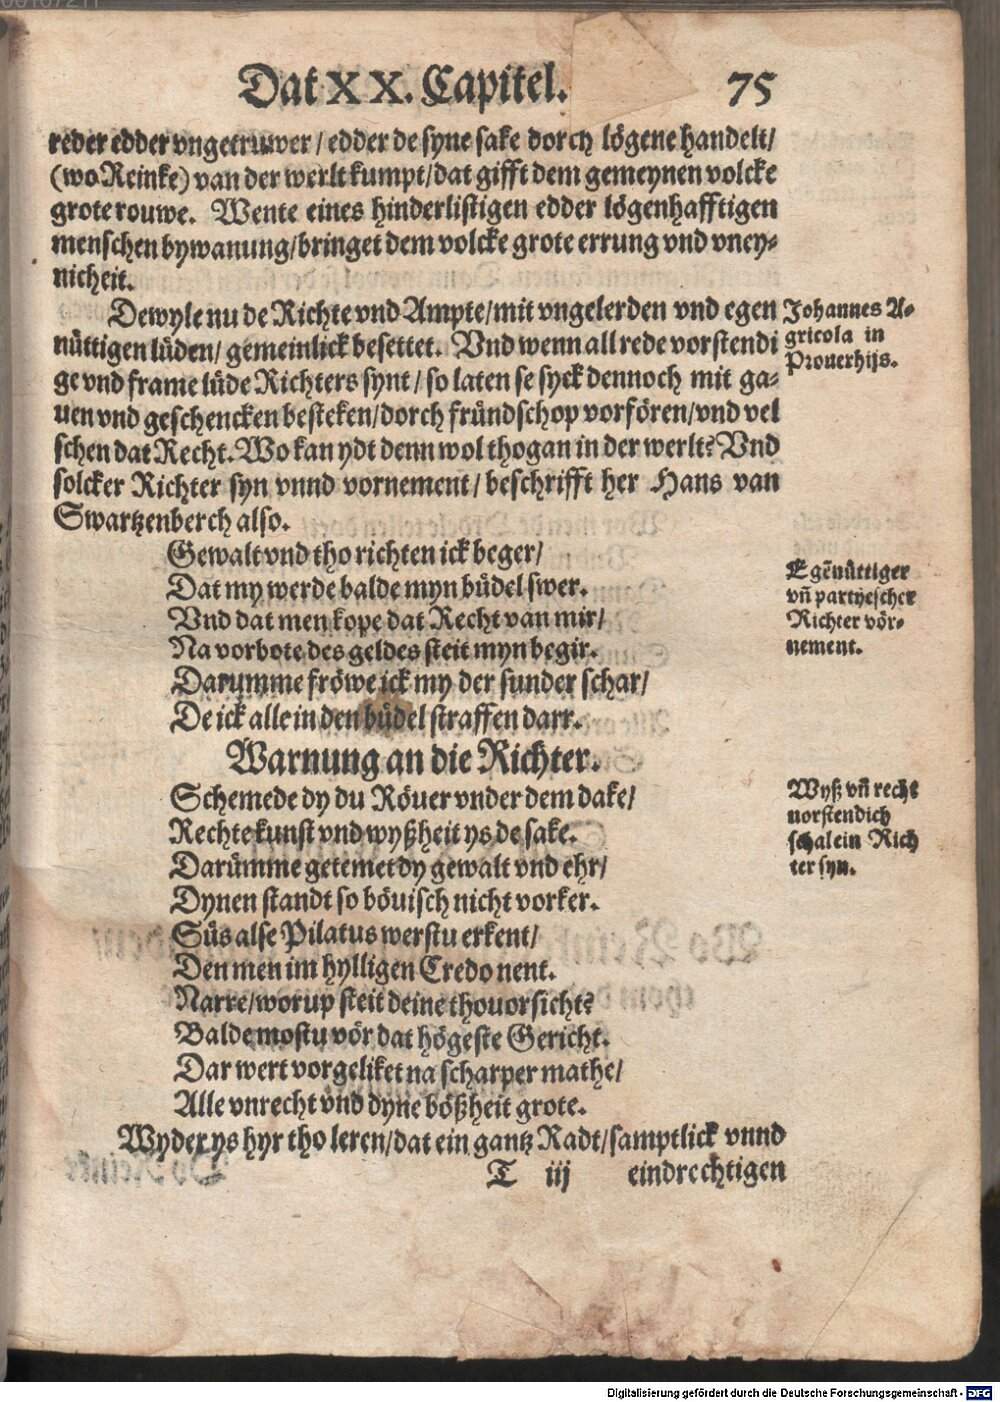 Dat XX. Capitel. 75
reder edder vngetruwer / edder de syne sake dorch lögene handelt/
(wo Reinke) van der werlt kumpt/dat gifft dem gemeynen volcke
grote rouwe. Wente eines hinderlistigen edder lögenhafftigen
menschen bywanung/bringet dem volcke grote errung vnd vney-
nicheit.
Dewyle nu de Richte vnd Ampte/mit vngelerden vnd egen
nüttigen lüden/ gemeinlick besettet. Vnd wenn all rede vorstendi
ge vnd frame lüde Richters synt / so laten se syck dennoch mit ga-
uen vnd geschencken besteken/dorch fründschop vorfören/vnd vel
schen dat Recht. Wo kan ydt denn wol thogan in der werlt? Vnd
solcker Richter syn vnnd vornement / beschrifft her Hans van
Swartzenberch also.
Johannes A-
gricola in
Prouerbijs.
Gewalt vnd tho richten ick beger/
Dat my werde balde myn büdel swer.
Vnd dat men kope dat Recht van mir/
Na vorbote des geldes steit myn begir.
Darumme fröwe ick my der sunder schar/
De ick alle in den büdel straffen darr.
Egēnüttiger
vñ partyescher
Richter vör-
nement.
Warnung an die Richter.
Schemede dy du Röuer vnder dem dake/
Rechte kunst vnd wyßheit ys de sake.
Darümme getemet dy gewalt vnd ehr/
Dynen standt so böuisch nicht vorker.
Süs alse Pilatus werstu erkent/
Den men im hylligen Credo nent.
Narre/worup steit deine thouorsicht?
Balde mostu vör dat högeste Gericht.
Dar wert vorgeliket na scharper mathe/
Alle vnrecht vnd dyne bößheit grote.
Wyß vñ recht
uorstendich
schal ein Rich
ter syn.
Wyder ys hyr tho leren/dat ein gantz Radt/samptlick vnnd
T iij eindrechtigen
Digitalisierung gefördert durch die Deutsche Forschungsgemeinschaft - DFG